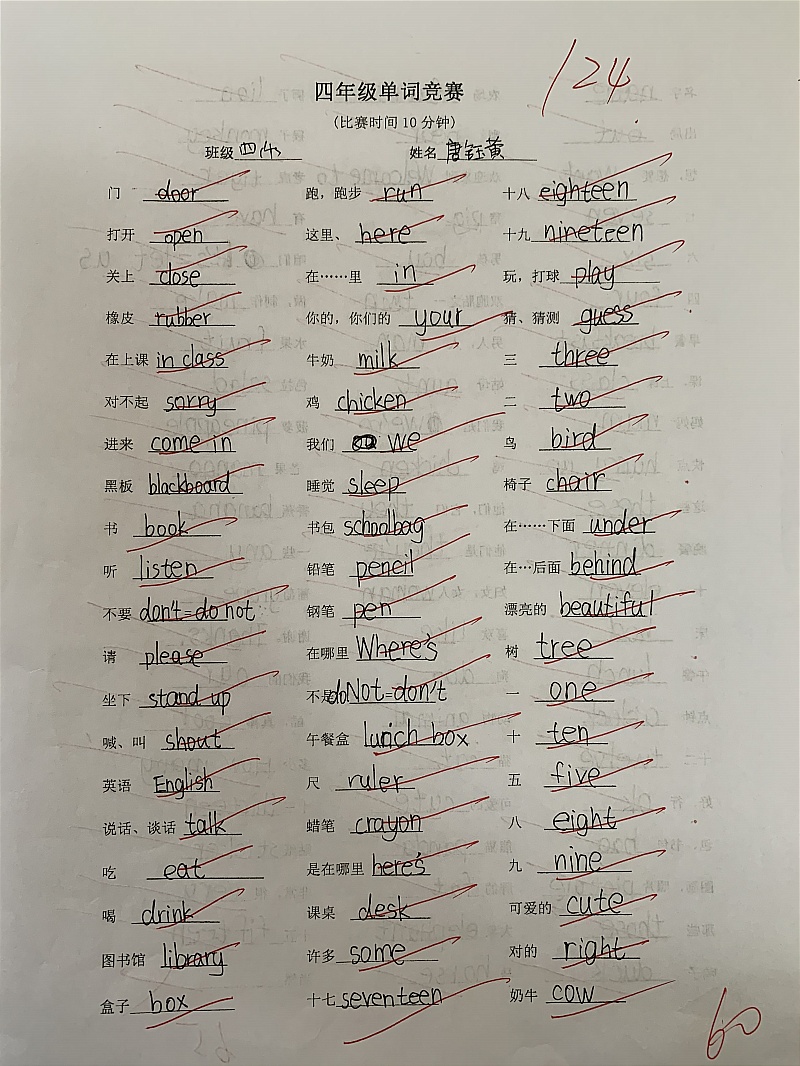 124
四年级单词竞赛
(比赛时间10分钟)
班级 四 姓名 唐钰黄
门 door 跑，跑步 run 十八 eighteen
打开 open 这里、 here 十九 nineteen
关上 close 在……里 in 玩，打球 play
橡皮 rubber 你的，你们的 your 猜、猜测 guess
在上课 in class 牛奶 milk 三 three
对不起 sorry 鸡 chicken 二 two
进来 come in 我们 we 鸟 bird
黑板 blackboard 睡觉 sleep 椅子 chair
书 book 书包 schoolbag 在……下面 under
听 listen 铅笔 pencil 在…后面 behind
不要 don't=do not 钢笔 pen 漂亮的 beautiful
请 please 在哪里 Where's 树 tree
坐下 stand up 不是 doNot=don't 一 one
喊、叫 shout 午餐盒 lunch box 十 ten
英语 English 尺 ruler 五 five
说话、谈话 talk 蜡笔 crayon 八 eight
吃 eat 是在哪里 here's 九 nine
喝 drink 课桌 desk 可爱的 cute
图书馆 library 许多 some 对的 right
盒子 box 十七 seventeen 奶牛 cow
60